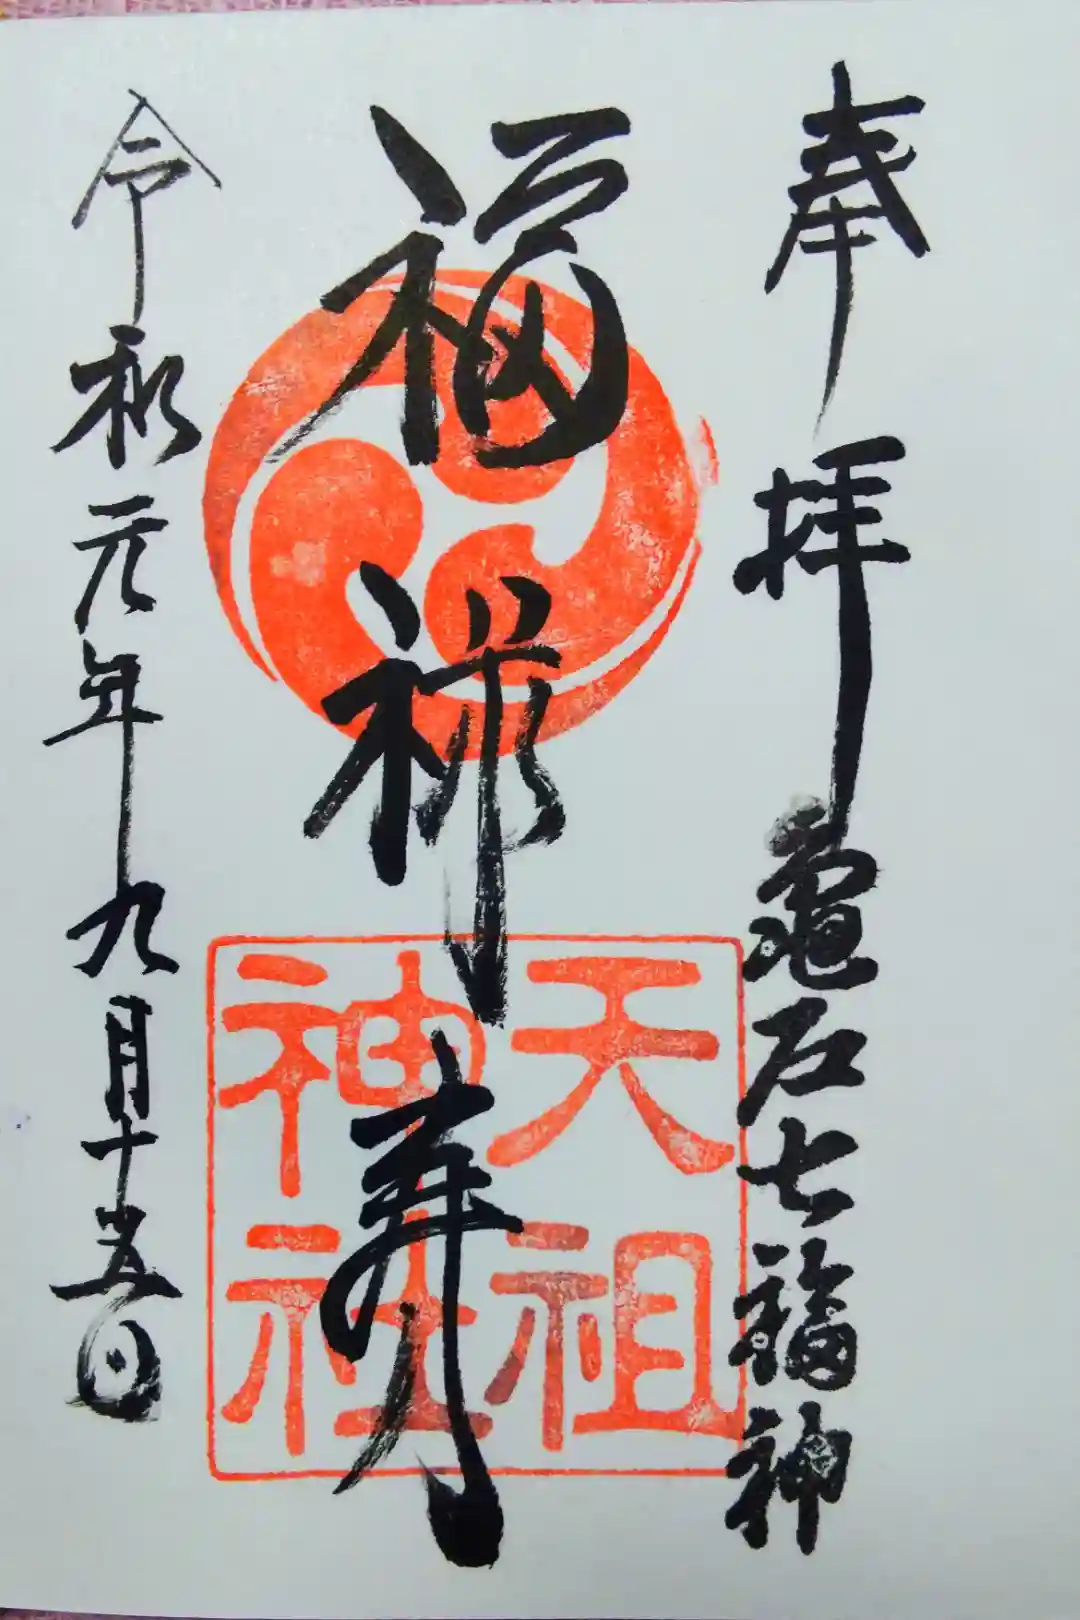 奉拝 亀戸七福神
福禄寿
天祖
神社
令和元年九月十五日